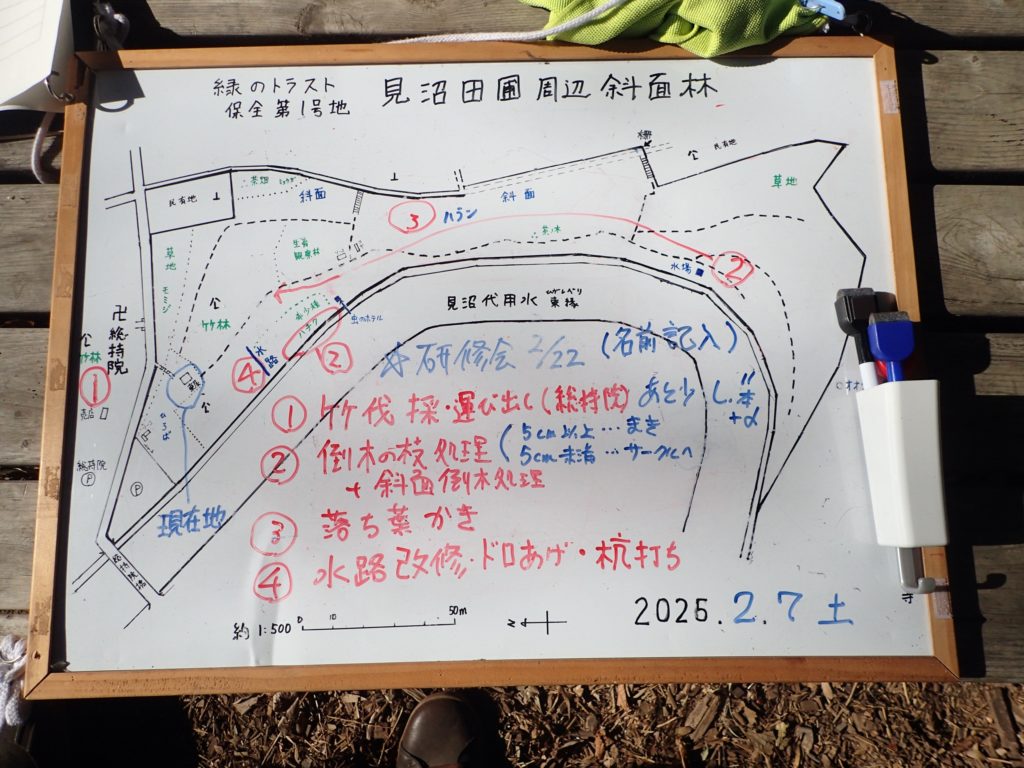 緑のトラスト
保全第1号地
見沼田圃周辺斜面林
民有地
茶畑
斜面
斜面
民有地
草地
③
ハラン
茶ノ木
②
水場
草地
モミジ
竹林
ハチク
虫のホテル
見沼代用水 東縁
卍総持院
竹林
①
売店
ひろば
④
水路
②
☆研修会 2/22 (名前記入)
① 竹伐採・運び出し(総持院) あと少し
本
+α
② 倒木の枝処理 (5cm以上…まき
5cm未満…サークルへ
+ 斜面倒木処理
③ 落ち葉かき
④ 水路改修・ドロあげ・杭打ち
総持院
P
P
現在地
約1:500
0 10 50m
N
2026.2.7 土